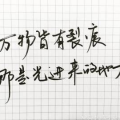 万物皆有裂痕
那是光进来的地方